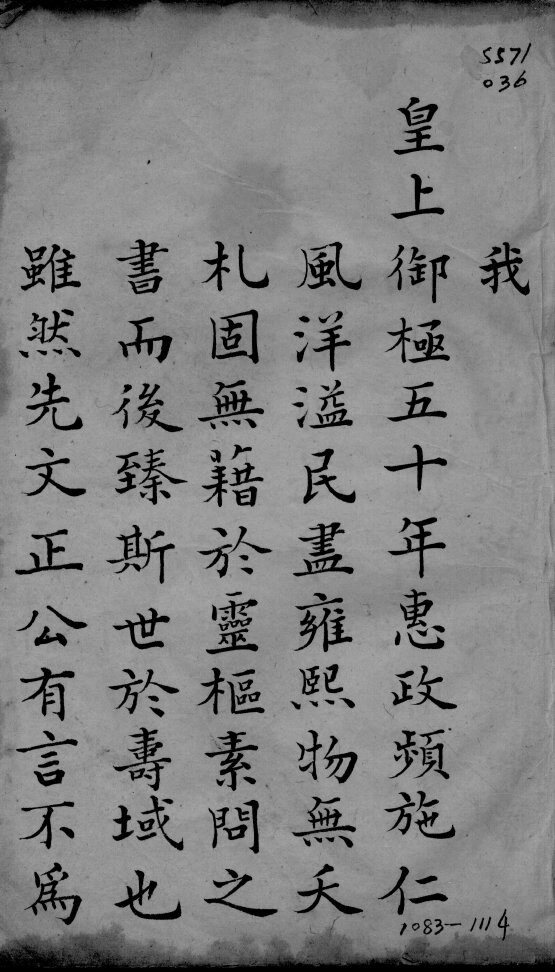 5571
036
我
皇上御極五十年惠政頻施仁
風洋溢民盡雍熙物無夭
札固無藉於靈樞素問之
書而後臻斯世於壽域也
雖然先文正公有言不為
1083-1114